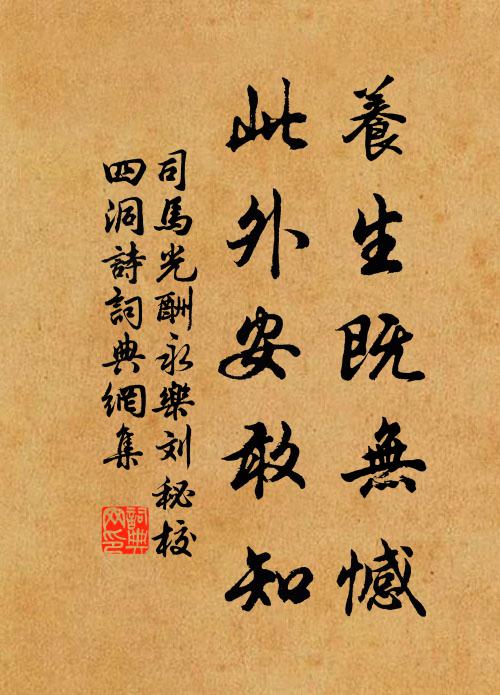 養生既無憾
此外安敢知
司馬光酬永樂刘秘校
四洞詩詞典網集
詞典网印